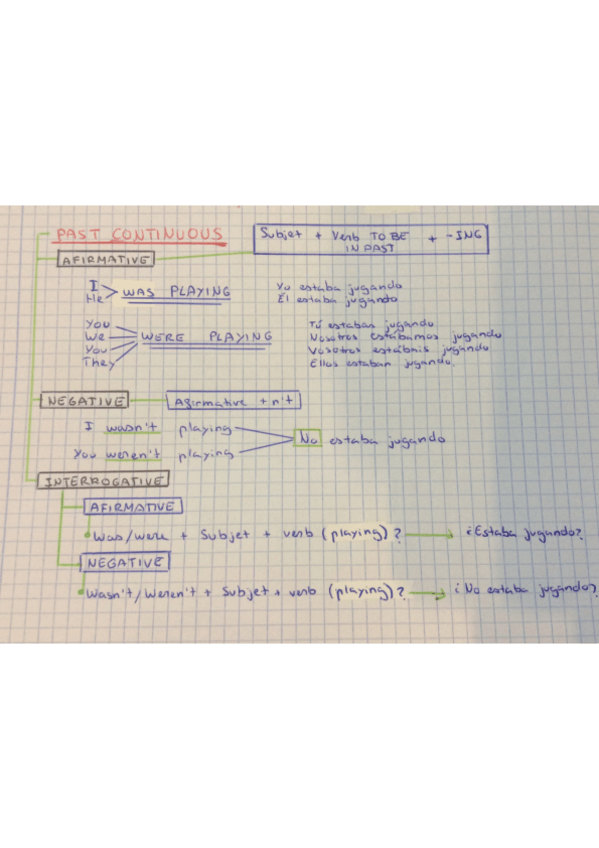 PAST CONTINUOUS
Subjet + Verb TO BE IN PAST + -ING
AFIRMATIVE
I
He
WAS PLAYING
Yo estaba jugando
Él estaba jugando
You
We
You
They
WERE PLAYING
Tú estabas jugando
Nosotros estábamos jugando
Vosotros estábais jugando
Ellos estaban jugando.
NEGATIVE
Afirmative + n't
I wasn't playing
You weren't playing
No estaba jugando
INTERROGATIVE
AFIRMATIVE
Was/were + Subjet + verb (playing)? → ¿Estaba jugando?
NEGATIVE
Wasn't/Weren't + Subjet + verb (playing)? → ¿No estaba jugando?